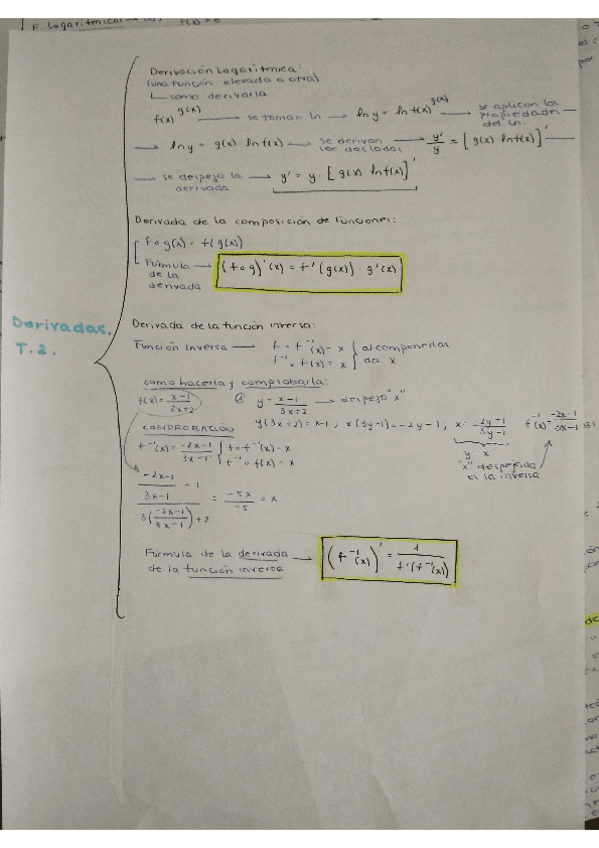 F. Logaritmicas
Derivación Logaritmica:
(una función elevada a otra)
como derivarla
f(x)^g(x) → se toman ln → ln y = ln f(x)^g(x) → se aplican las propiedades del ln.
→ ln y = g(x) · ln f(x) → se derivan los dos lados → y'/y = [g(x) · ln f(x)]'
→ se despeja la derivada → y' = y · [g(x) · ln f(x)]'
Derivada de la composición de funciones:
f∘g(x) = f(g(x))
Fórmula de la derivada → (f∘g)'(x) = f'(g(x)) · g'(x)
Derivadas.
T.2.
Derivada de la función inversa:
Función Inversa → f∘f⁻¹(x) = x
f⁻¹∘f(x) = x } al componerlas da x
como hacerla y comprobarla:
f(x) = x-1/3x+2
y = x-1/3x+2 → despejo "x"
y(3x+2) = x-1, x(3y-1) = -2y-1, x = -2y-1/3y-1
f⁻¹(x) = -2x-1/3x-1
y x
"x" despejada es la inversa
COMPROBACIÓN
f⁻¹(x) = -2x-1/3x-1 } f∘f⁻¹(x) = x
f⁻¹∘f(x) = x
-2x-1/3x-1 - 1 / 3(-2x-1/3x-1)+2 = -5x/-5 = x
Fórmula de la derivada de la función inversa → (f⁻¹(x))' = 1/f'(f⁻¹(x))